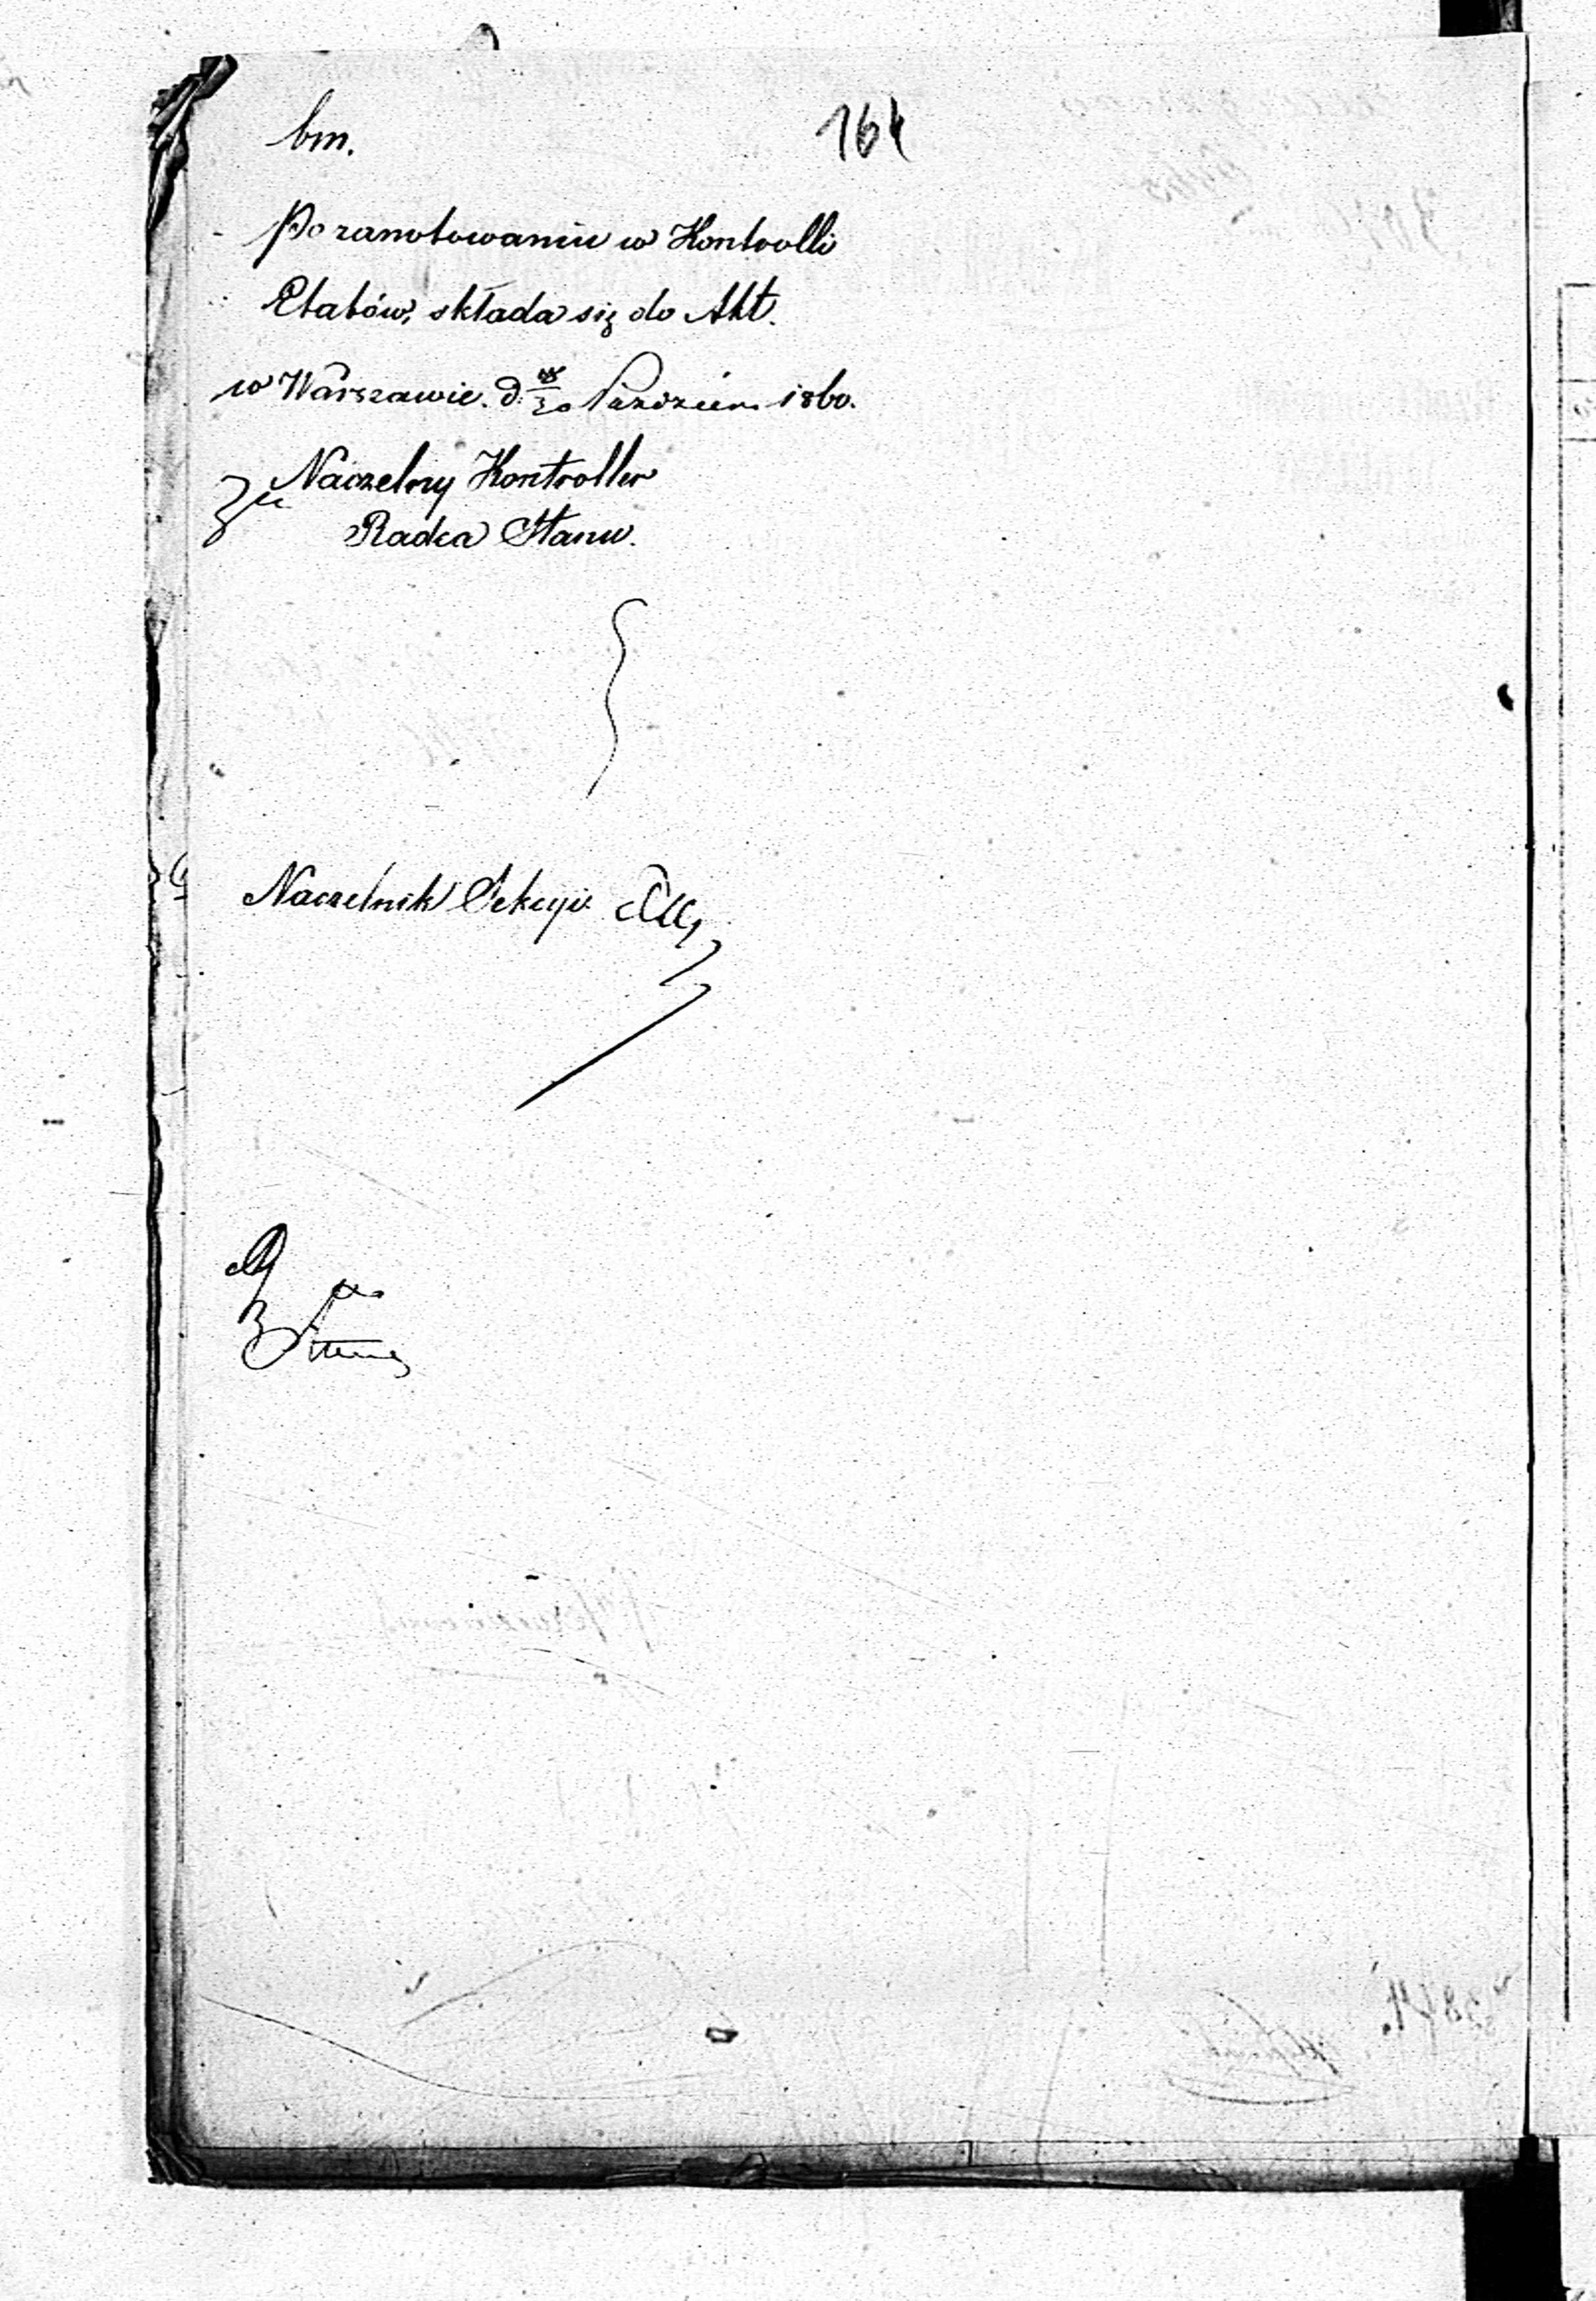 bm.
164
Po zanotowaniu w Kontrolli
Etatów, składa się do Akt.
w Warszawie. d. 18/30 Paździer. 1860.
Za Naczelny Kontroller
Radca Stanu.
Naczelnik Sekcyi